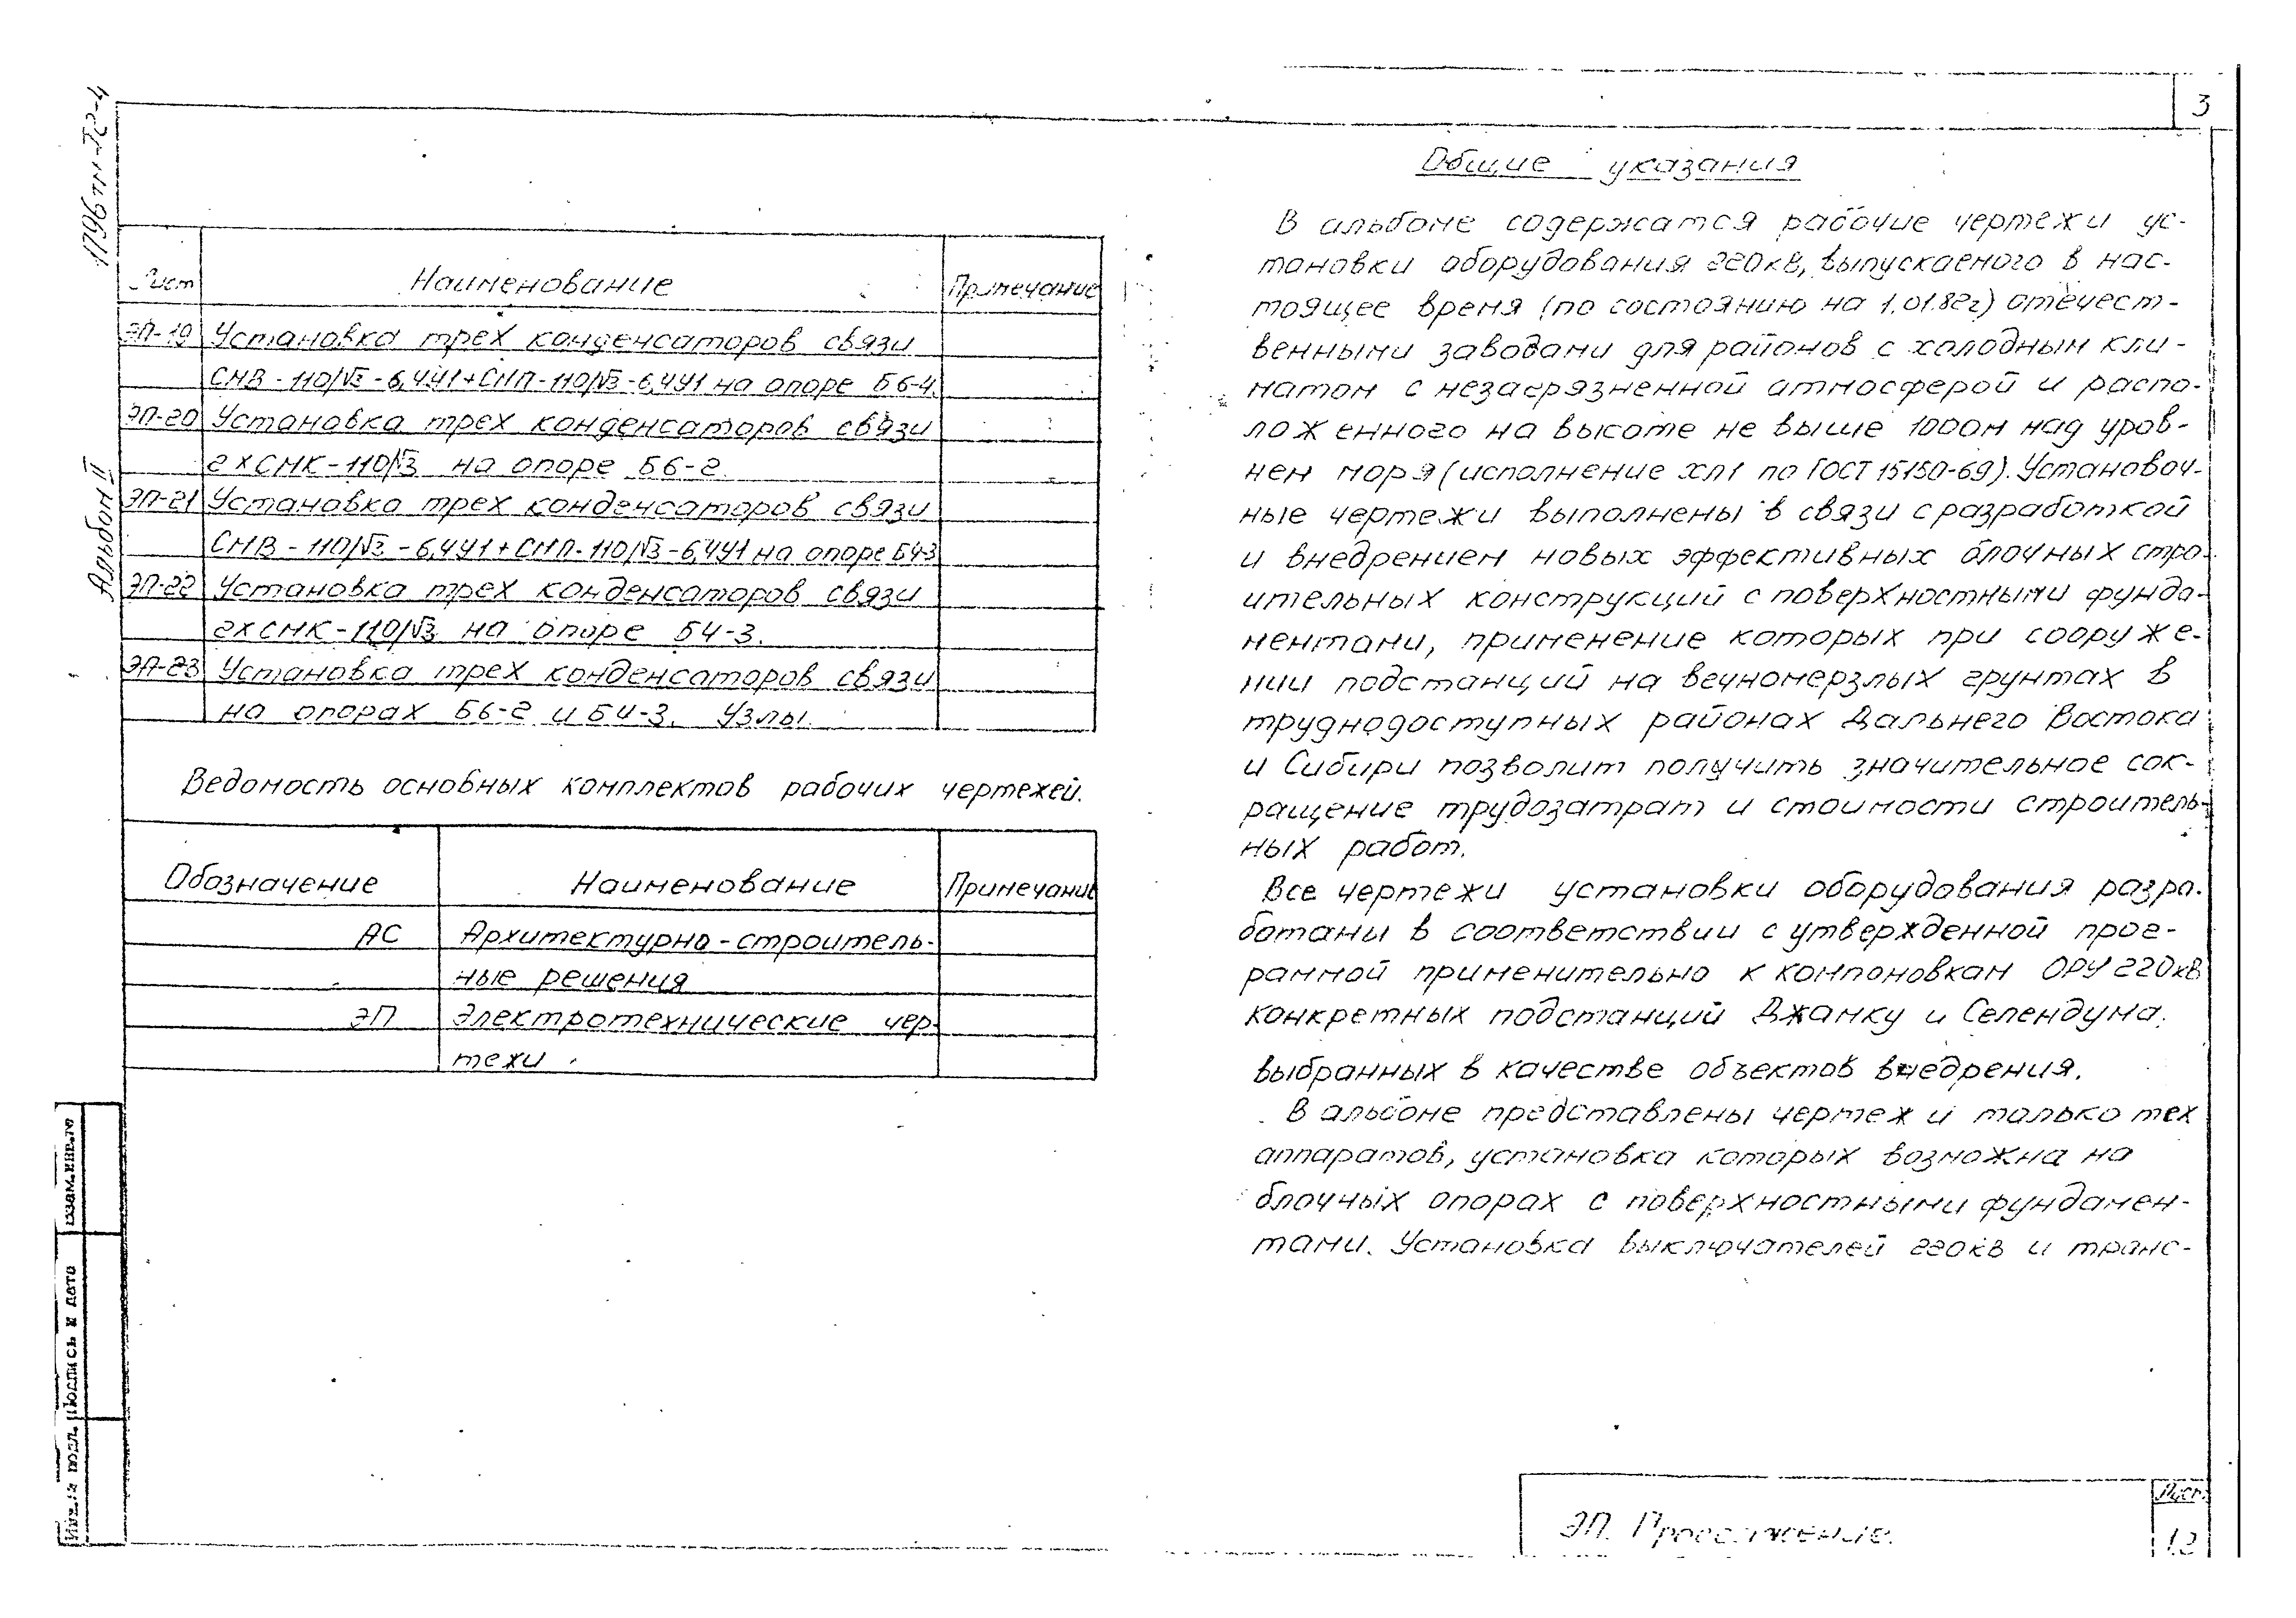 3
1796тм-Т2-4
Альбом II
Лист Наименование Примечание
ЭП-19 Установка трех конденсаторов связи
СМВ-110/√3-6,4У1+СМП-110/√3-6,4У1 на опоре Б6-4.
ЭП-20 Установка трех конденсаторов связи
2хСМК-110/√3 на опоре Б6-2.
ЭП-21 Установка трех конденсаторов связи
СМВ-110/√3-6,4У1+СМП-110/√3-6,4У1 на опоре Б4-3
ЭП-22 Установка трех конденсаторов связи
2хСМК-110/√3 на опоре Б4-3.
ЭП-23 Установка трех конденсаторов связи
на опорах Б6-2 и Б4-3. Узлы.
Ведомость основных комплектов рабочих чертежей.
Обозначение Наименование Примечание
АС Архитектурно-строитель-
ные решения
ЭП Электротехнические чер-
тежи
Общие указания
В альбоме содержатся рабочие чертежи ус-
тановки оборудования 220кВ, выпускаемого в нас-
тоящее время (по состоянию на 1.01.82г) отечест-
венными заводами для районов с холодным кли-
матом с незагрязненной атмосферой и распо-
ложенного на высоте не выше 1000м над уров-
нем моря (исполнение ХЛ1 по ГОСТ 15150-69). Установоч-
ные чертежи выполнены в связи с разработкой
и внедрением новых эффективных блочных стро-
ительных конструкций с поверхностными фунда-
ментами, применение которых при сооруже-
нии подстанций на вечномерзлых грунтах в
труднодоступных районах Дальнего Востока
и Сибири позволит получить значительное сок-
ращение трудозатрат и стоимости строитель-
ных работ.
Все чертежи установки оборудования разра-
ботаны в соответствии с утвержденной прог-
раммой применительно к компоновкам ОРУ 220кВ
конкретных подстанций Джамку и Селендума,
выбранных в качестве объектов внедрения.
В альбоме представлены чертежи только тех
аппаратов, установка которых возможна на
блочных опорах с поверхностными фундамен-
тами. Установка выключателей 220кВ и транс-
Взам.инв.№
Подпись и дата
Инв.№ подл.
ЭП. Продолжение.
Лист
1.2